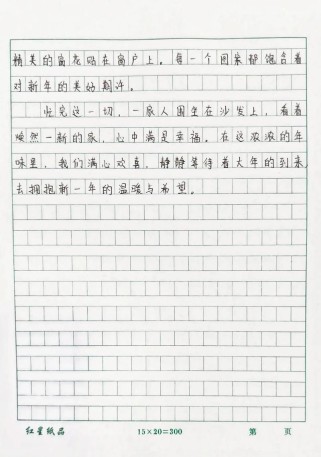 精美的窗花贴在窗户上。每一个图案都饱含着
对新年的美好期许。
忙完这一切，一家人围坐在沙发上，看着
焕然一新的家，心中满是幸福。在这浓浓的年
味里，我们满心欢喜，静静等待着大年的到来
去拥抱新一年的温暖与希望。
红星纸品 15×20=300 第 页